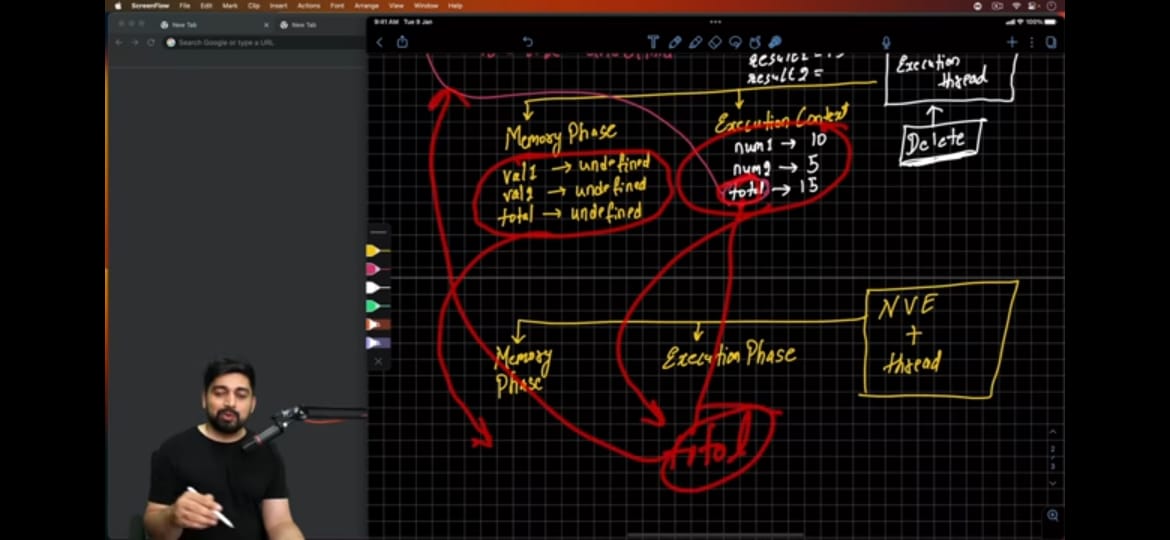 ScreenFlow File Edit Mark Clip Insert Actions Font Arrange View Window Help
New Tab
New Tab
Search Google or type a URL
9:41 AM Tue 9 Jan
100%
result2 =
Execution
thread
Memory Phase
Execution Context
Delete
val1 → undefined
val2 → undefined
total → undefined
num1 → 10
num2 → 5
total → 15
NVE
+
thread
Memory
Phase
Execution Phase
total
2
3